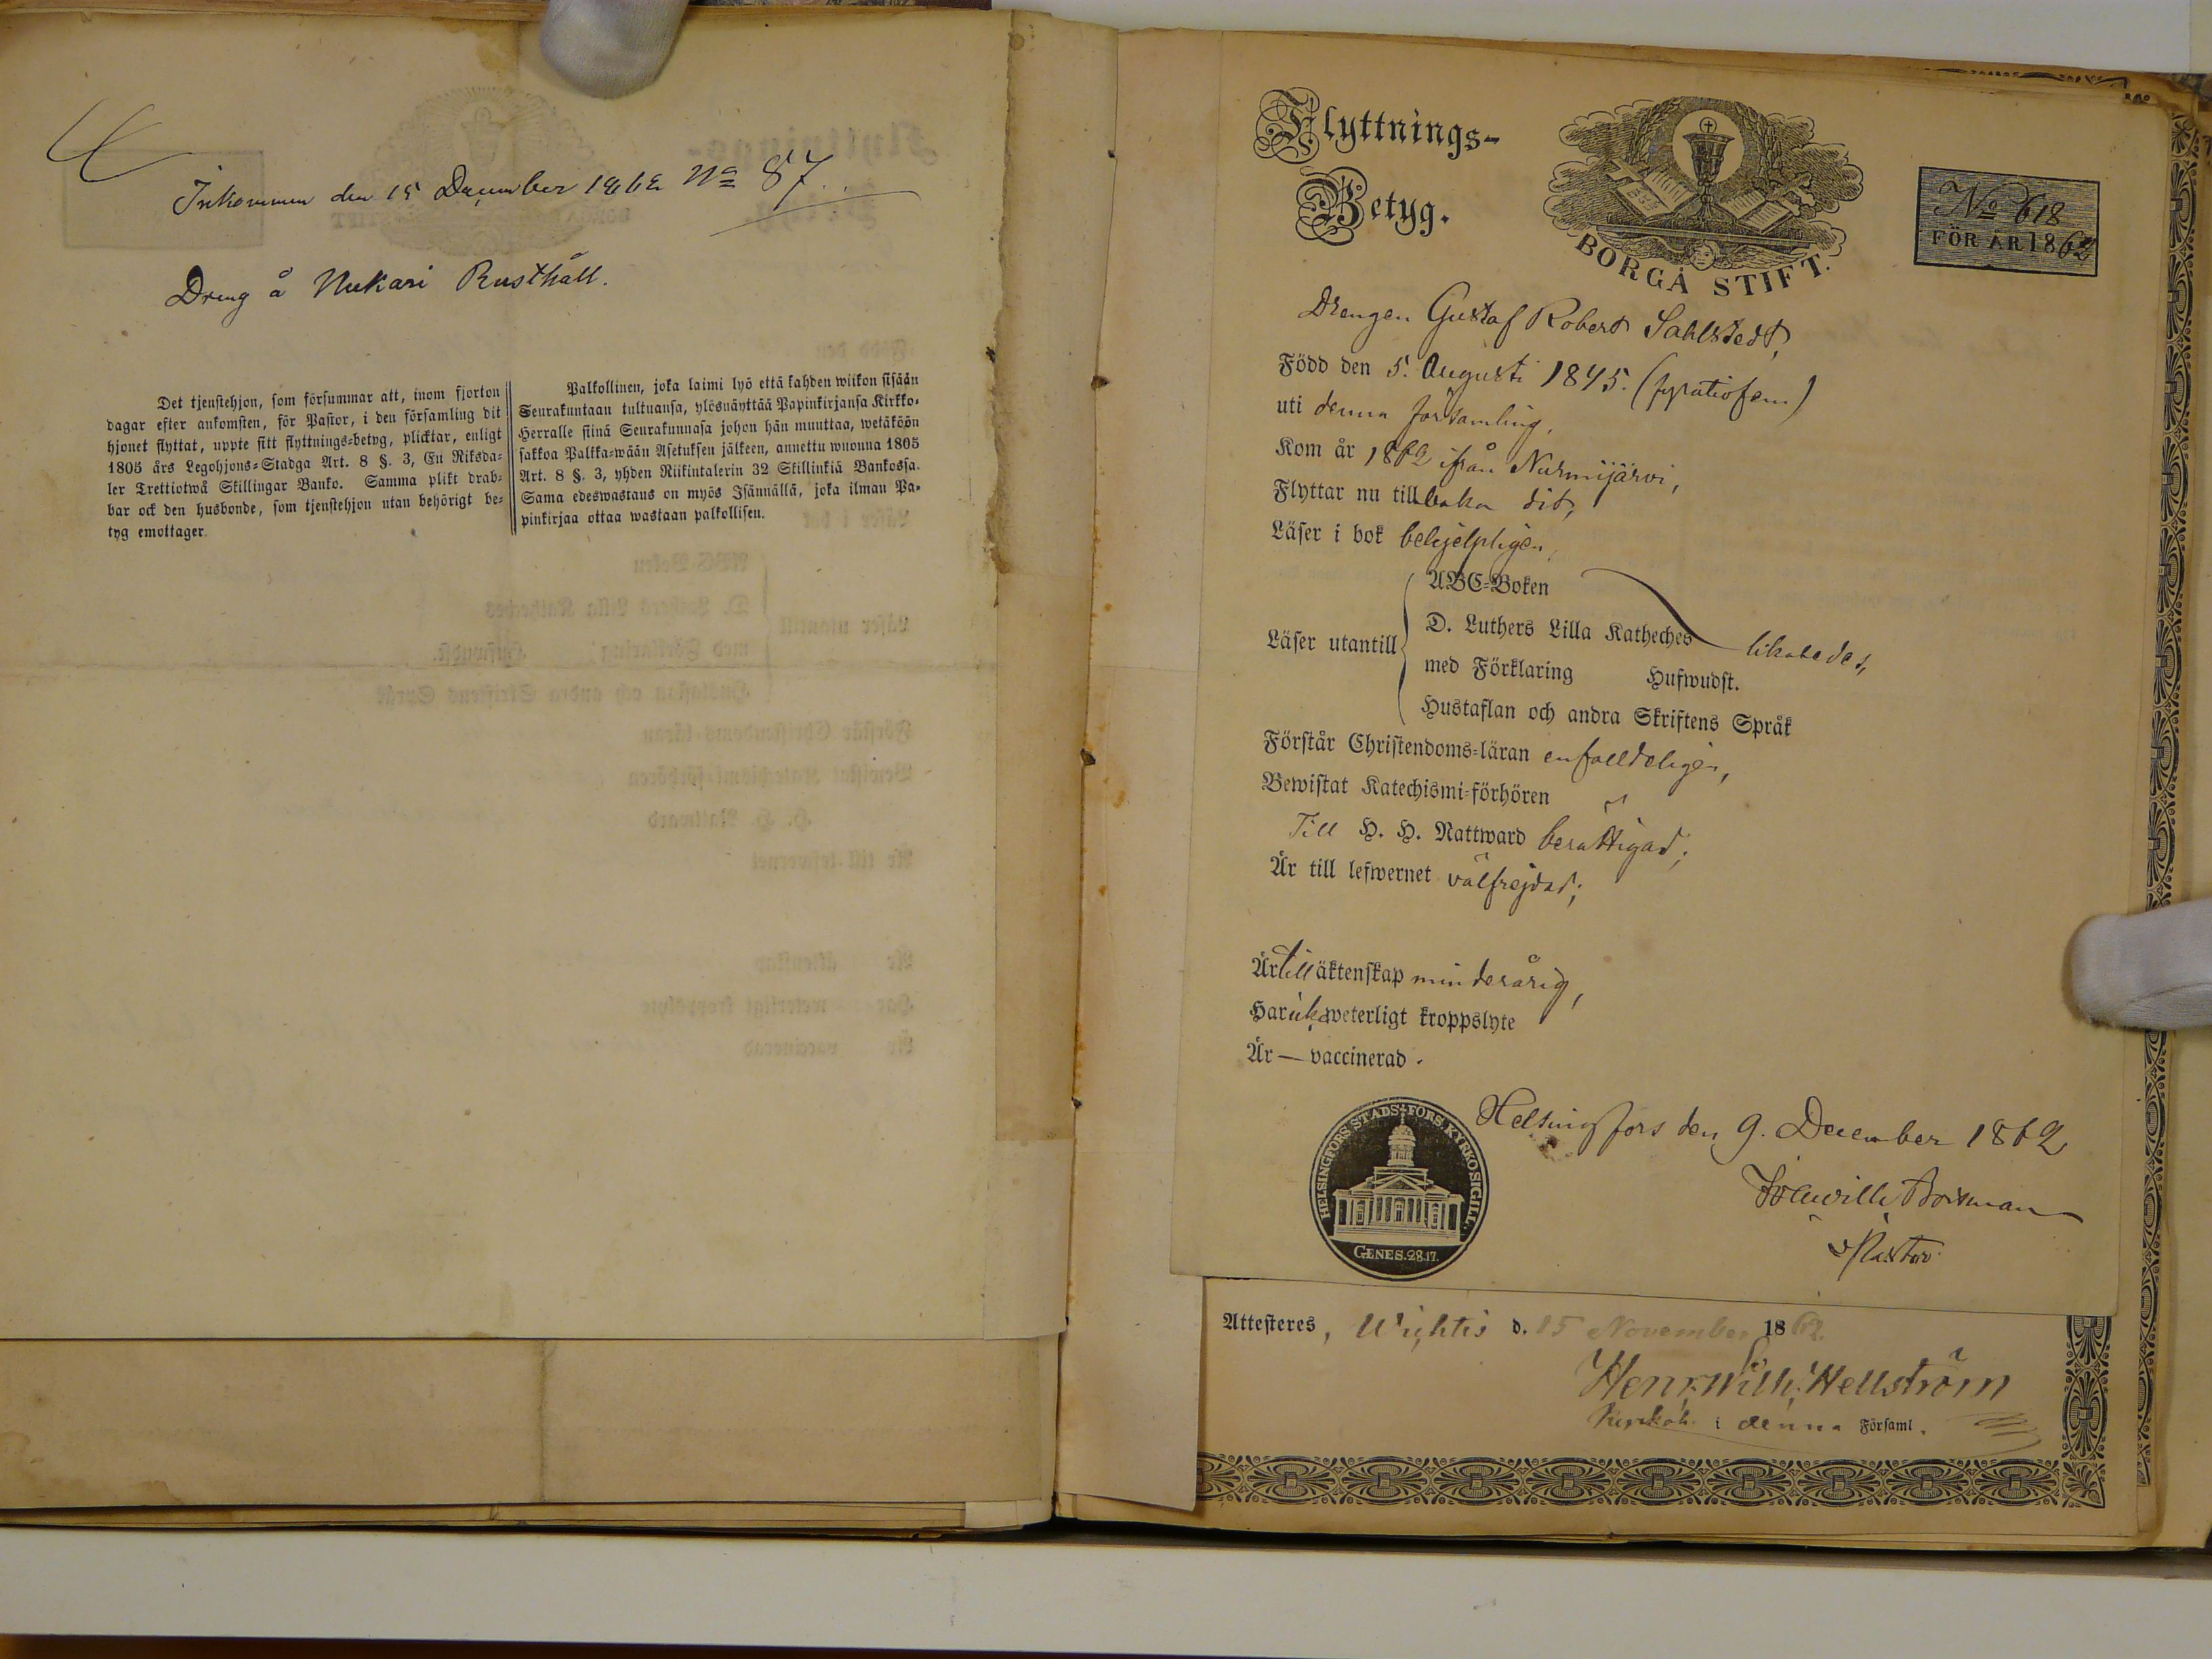 Inkommen den 15 December 1862 No 87.
Dreng å Nukari Rusthåll.
Det tjenstehjon, som försummar att, inom fjorton
dagar efter ankomsten, för Pastor, i den församling dit
hjonet flyttat, uppte sitt flyttnings-betyg, plicktar, enligt
1805 års Legohjons-Stadga Art. 8 §. 3, En Riksda-
ler Trettiotwå Skillingar Banko. Samma plikt drab-
bar ock den husbonde, som tjenstehjon utan behörigt be-
tyg emottager.
Palkollinen, joka laimi lyö että kahden wiikon sisään
Seurakuntaan tultuansa, ylösnäyttää Papinkirjansa Kirkko-
Herralle siinä Seurakunnasa johon hän muuttaa, wetäköön
sakkoa Palkka-wään Asetuksen jälkeen, annettu wuonna 1805
Art. 8 §. 3, yhden Riikintalerin 32 Skillinkiä Bankossa.
Sama edeswastaus on myös Isännällä, joka ilman Pa-
pinkirjaa ottaa wastaan palkollisen.
Flyttnings-
Betyg.
BORGÅ STIFT.
No 618
FÖR ÅR 1862
Drengen Gustaf Robert Sahlstedt,
Född den 5. Augusti 1845. (fyratiofem)
uti denna församling,
Kom år 1862 ifrån Nurmijärvi,
Flyttar nu tillbaka dit,
Läser i bok behjelpligen,
ABC-Boken
Läser utantill
D. Luthers Lilla Katheches
med Förklaring Hufwudst.
likaledes,
Hustaflan och andra Skriftens Språk
Förstår Christendoms-läran enfalldeligen,
Bewistat Katechismi-förhören
Till H. H. Nattward berättigad;
Är till lefwernet välfrejdad;
Är till äktenskap minderårig,
Har icke weterligt kroppslyte
Är — vaccinerad.
HELSINGFORS STADS FÖRS. KYRKOSIGILL.
GENES. 28.17.
Helsingfors den 9. December 1862
Boisman
v Pastor
Attesteres, Wichtis d. 15 November 1862.
Henr. Wilh. Hellström
Kyrkoh. i denna Församl.